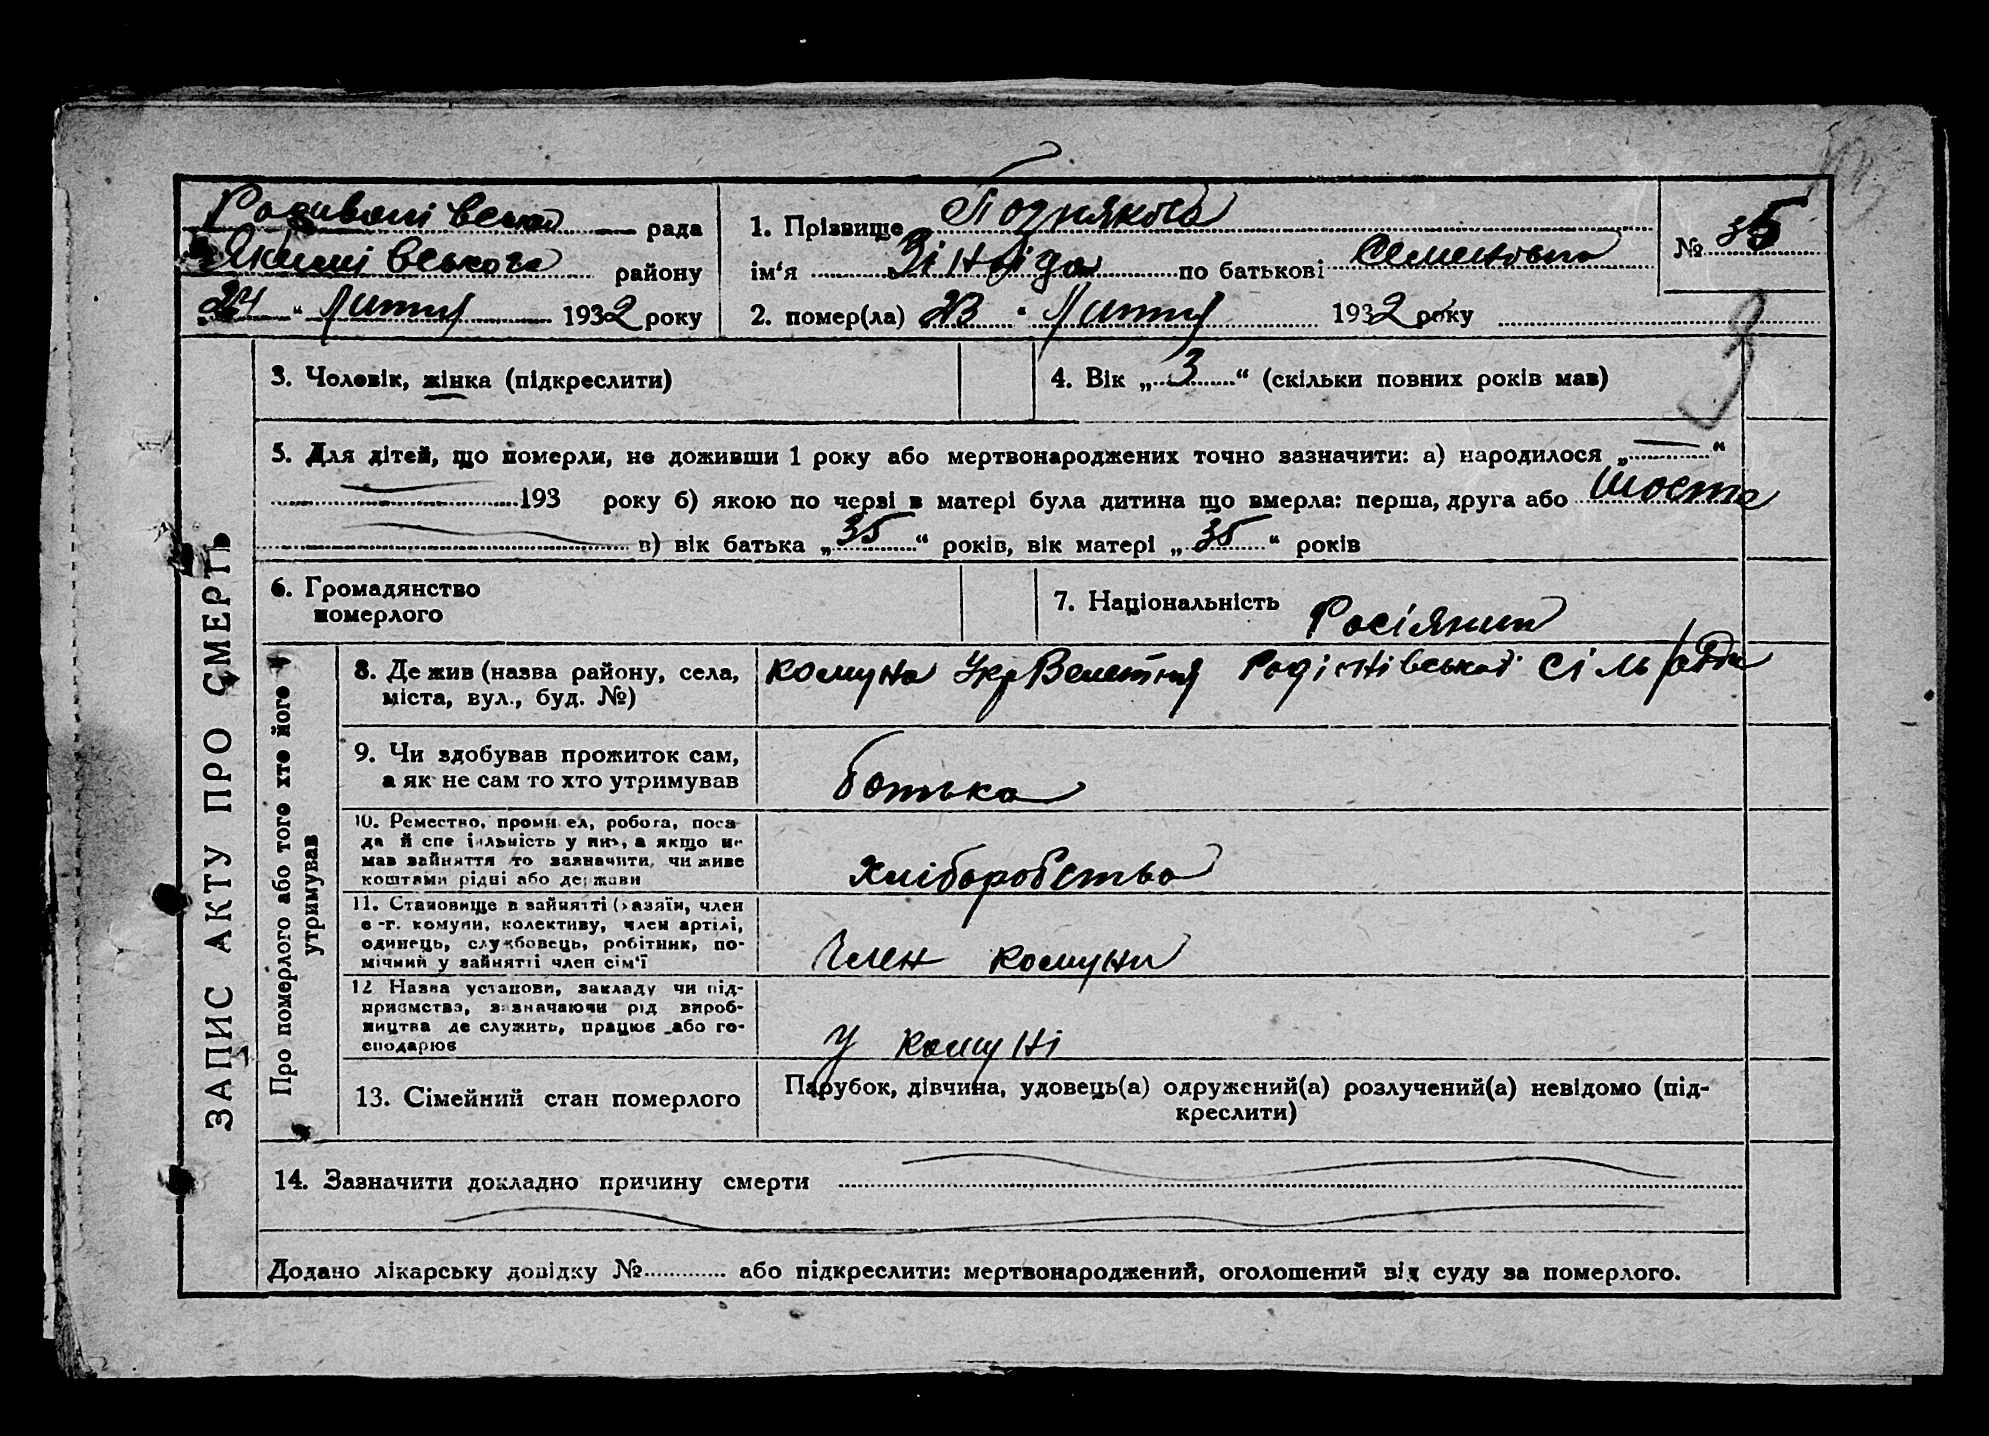 Родивонівська рада
Якимівського району
24 " Лютня 1932 року
1. Прізвище Позднякова
ім'я Зінаїда по батькові Семеновна
2. помер(ла) 23 " Лютня 1932 року
№ 35
3
3. Чоловік, жінка (підкреслити)
4. Вік „ 3 “ (скільки повних років мав)
5. Для дітей, що померли, не доживши 1 року або мертвонароджених точно зазначити: а) народилося „ — “
193 року б) якою по черзі в матері була дитина що вмерла: перша, друга або Шоста
в) вік батька „ 35 “ років, вік матері „ 35 “ років
6. Громадянство
померлого
7. Національність Росіянин
ЗАПИС АКТУ ПРО СМЕРТЬ
Про померлого або того хто його
утримував
8. Де жив (назва району, села,
міста, вул., буд. №)
комуна Родіонівської сільради
9. Чи здобував прожиток сам,
а як не сам то хто утримував
батько
10. Ремество, промисел, робота, поса-
да й спеціяльність у них, а якщо не
мав зайняття то зазначити, чи живе
коштами рідні або держави
хліборобство
11. Становище в зайнятті (хазяїн, член
с.-г. комуни, колективу, член артілі,
одинець, службовець, робітник, по-
мічний у зайнятті член сім'ї
Член комуни
12. Назва установи, закладу чи під-
приємства, зазначаючи рід вироб-
ництва де служить, працює або го-
сподарює
у комуні
13. Сімейний стан померлого
Парубок, дівчина, удовець(а) одружений(а) розлучений(а) невідомо (під-
креслити)
14. Зазначити докладно причину смерти
Додано лікарську довідку № або підкреслити: мертвонароджений, оголошений від суду за померлого.